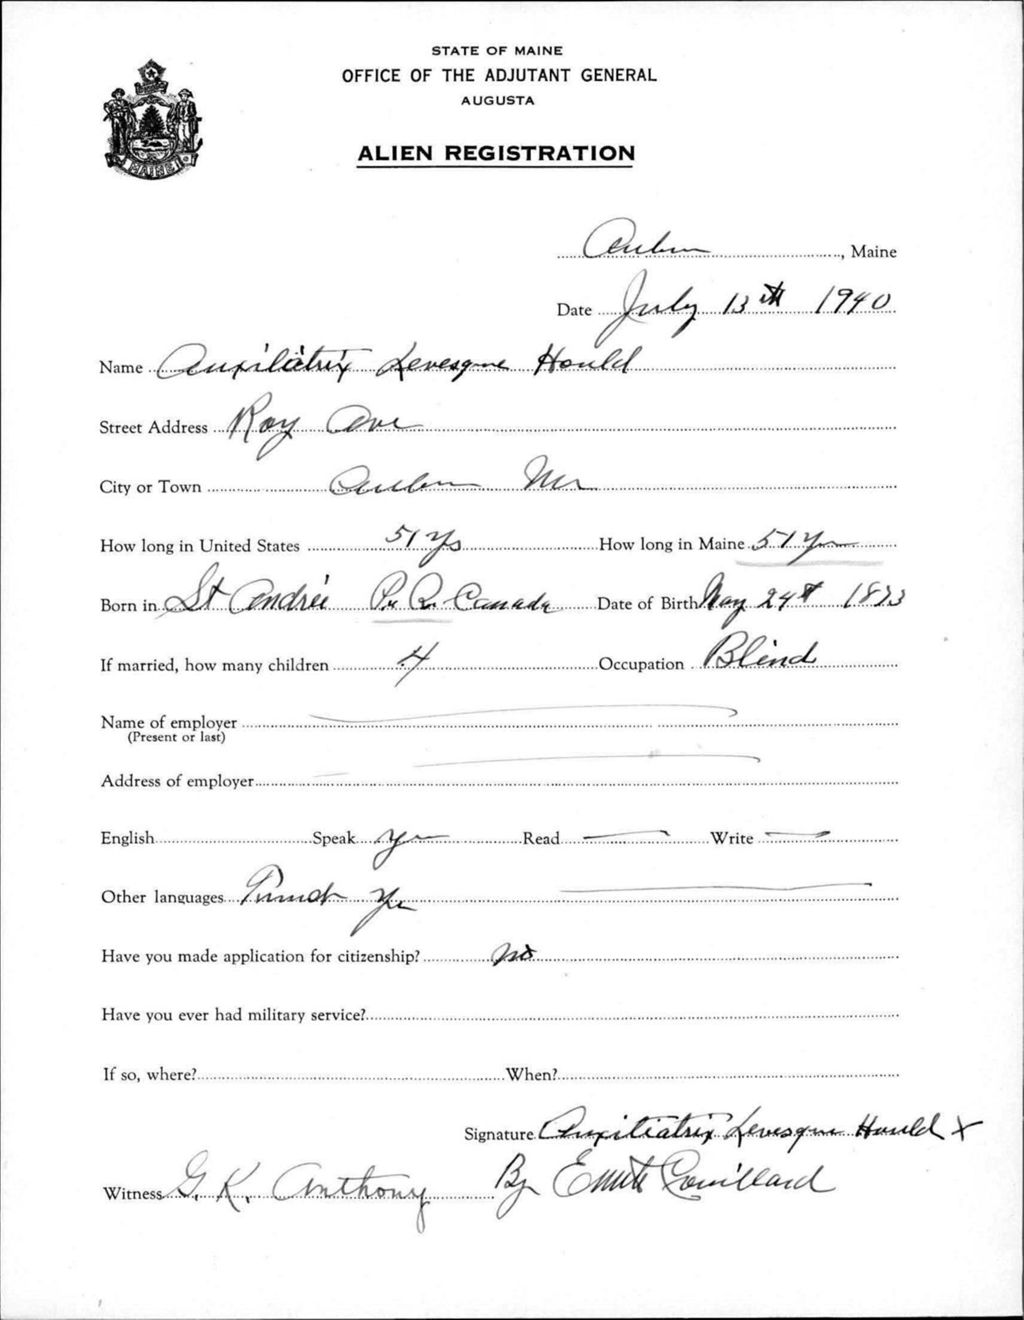 STATE OF MAINE
OFFICE OF THE ADJUTANT GENERAL
AUGUSTA
ALIEN REGISTRATION
MAINE
Auburn, Maine
Date July 13th 1940
Name Auxiliatrix Levesque Hould
Street Address Roy Ave
City or Town Auburn Me
How long in United States 51 Yrs How long in Maine 51 Yrs
Born in St Andrée P. Q. Canada Date of Birth May 24th 1873
If married, how many children 4 Occupation Blind
Name of employer
(Present or last)
Address of employer
English Speak yes Read Write
Other languages French Yes
Have you made application for citizenship? no
Have you ever had military service?
If so, where? When?
Signature Auxiliatrix Levesque Hould X
Witness G. K. Anthony By Couillard